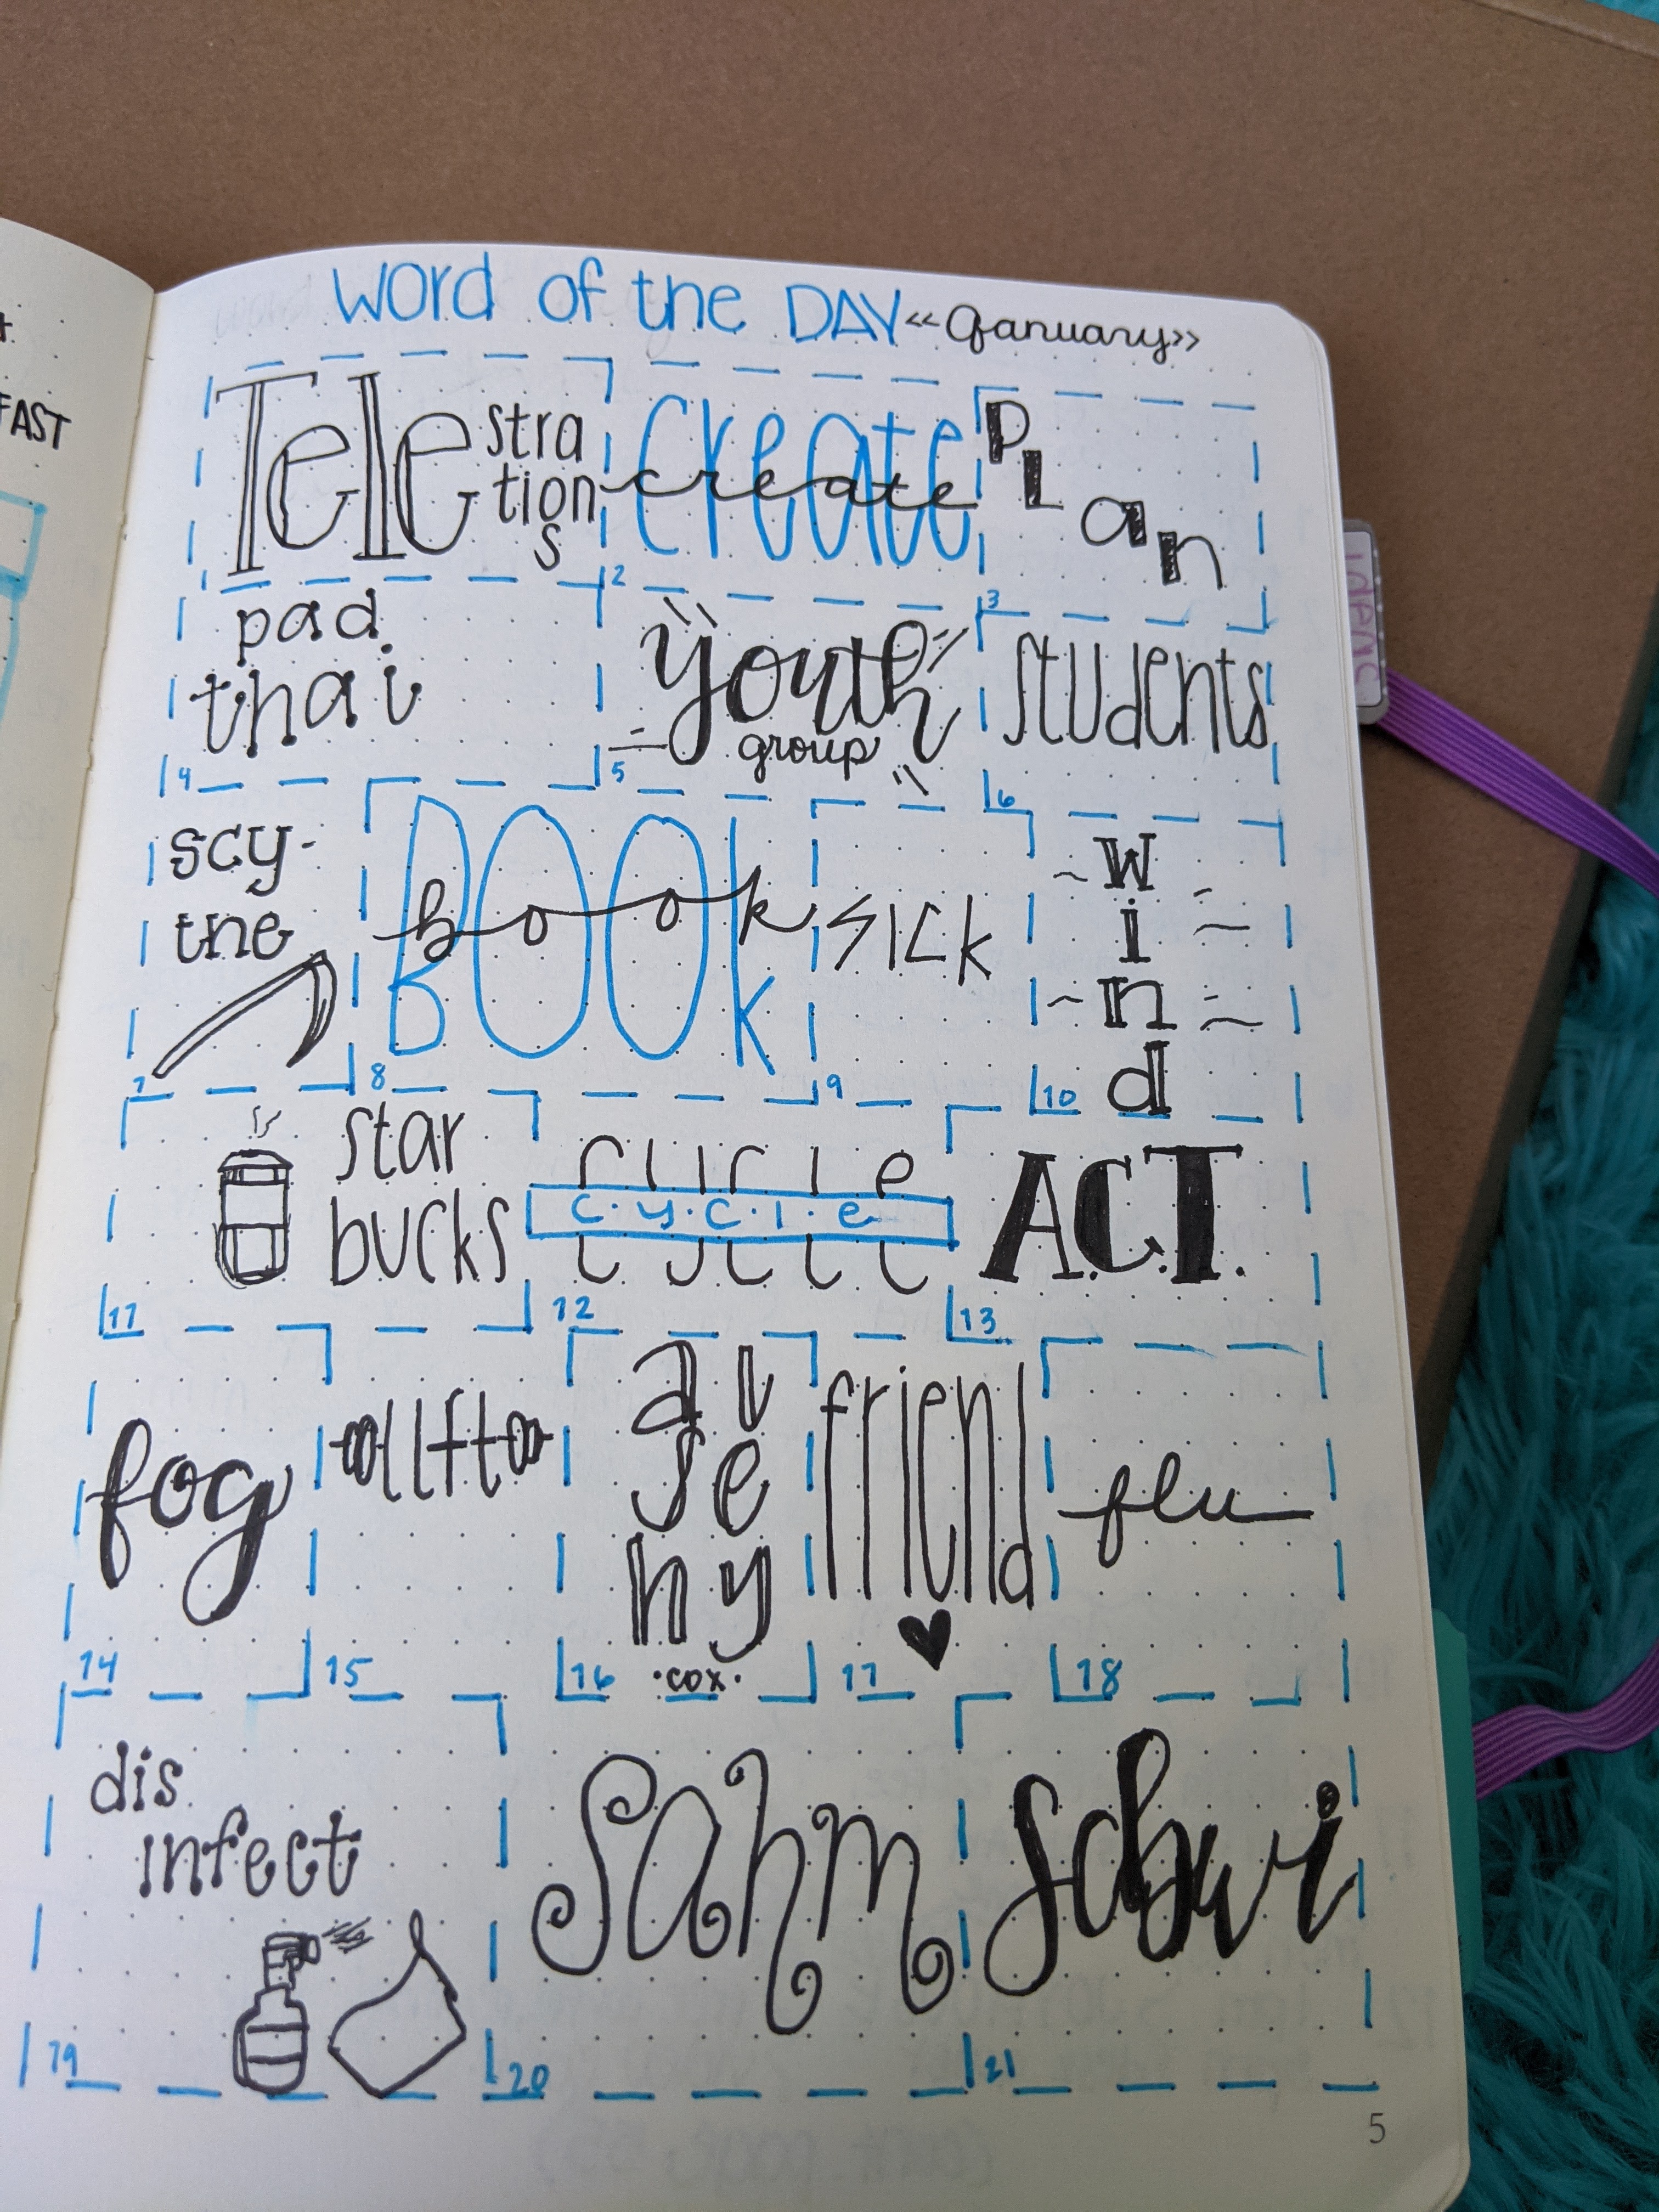 FAST
WORD of the DAY «January»
Tele
stra
tion
s
create
create
PLan
2
3
pad
thai
youth
group
students
4
5
6
scy-
the
BOOK
book
sick
wind
7
8
9
10
star
bucks
cycle
c.y.c.l.e
A.C.T.
11
12
13
fog
au
se
hy
.cox.
friend
flu
14
15
16
17
18
dis
infect
Sahm
Schwi
19
20
21
5